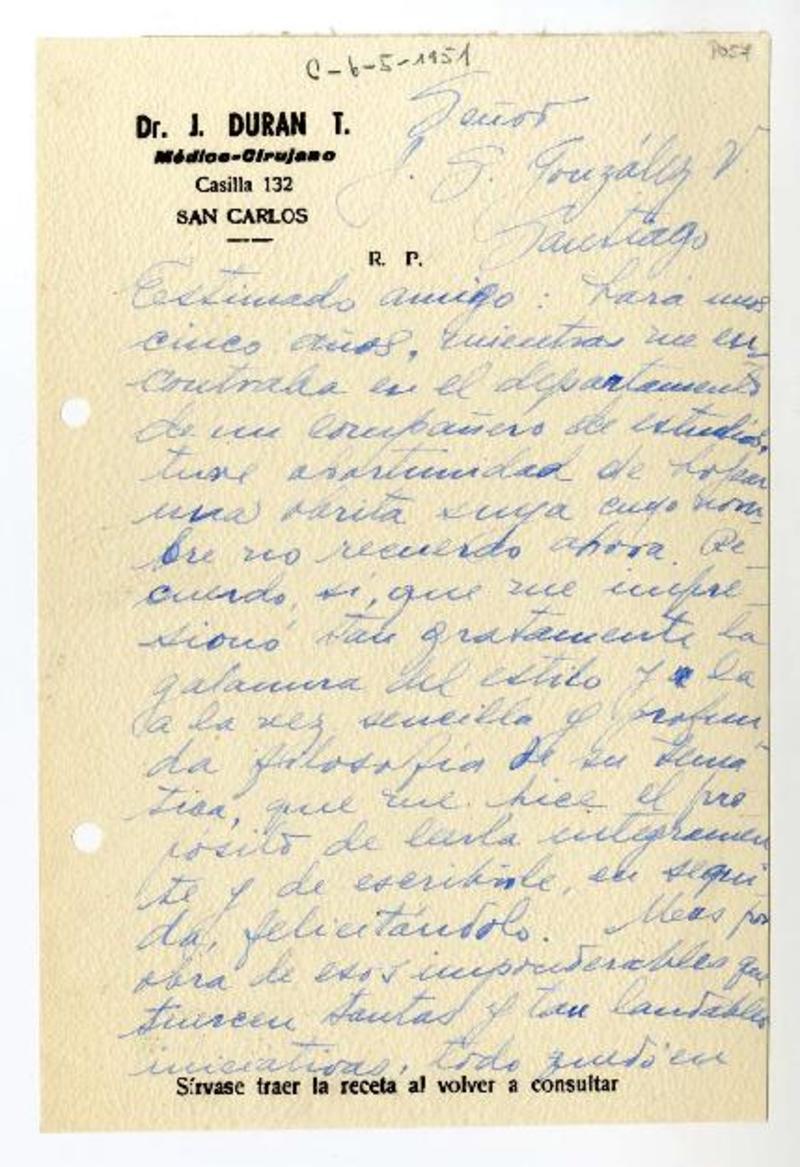 C-6-5-1951
P057
Dr. J. DURAN T.
Médico-Cirujano
Casilla 132
SAN CARLOS
Señor
J. S. González V.
Santiago
R. P.
Estimado amigo: hará unos
cinco años, mientras me en-
contraba en el departamento
de un compañero de estudios,
tuve oportunidad de hojear
una obrita suya cuyo nom-
bre no recuerdo ahora. Re-
cuerdo, sí, que me impre-
sionó tan gratamente la
galanura del estilo y la
a la vez sencilla y profun-
da filosofía de su temá-
tica, que me hice el pro
pósito de leerla integramen
te y de escribirle, en segui-
da, felicitándolo. Mas por
obra de esos imponderables que
tuercen tantas y tan laudables
iniciativas, todo quedó en
Sírvase traer la receta al volver a consultar